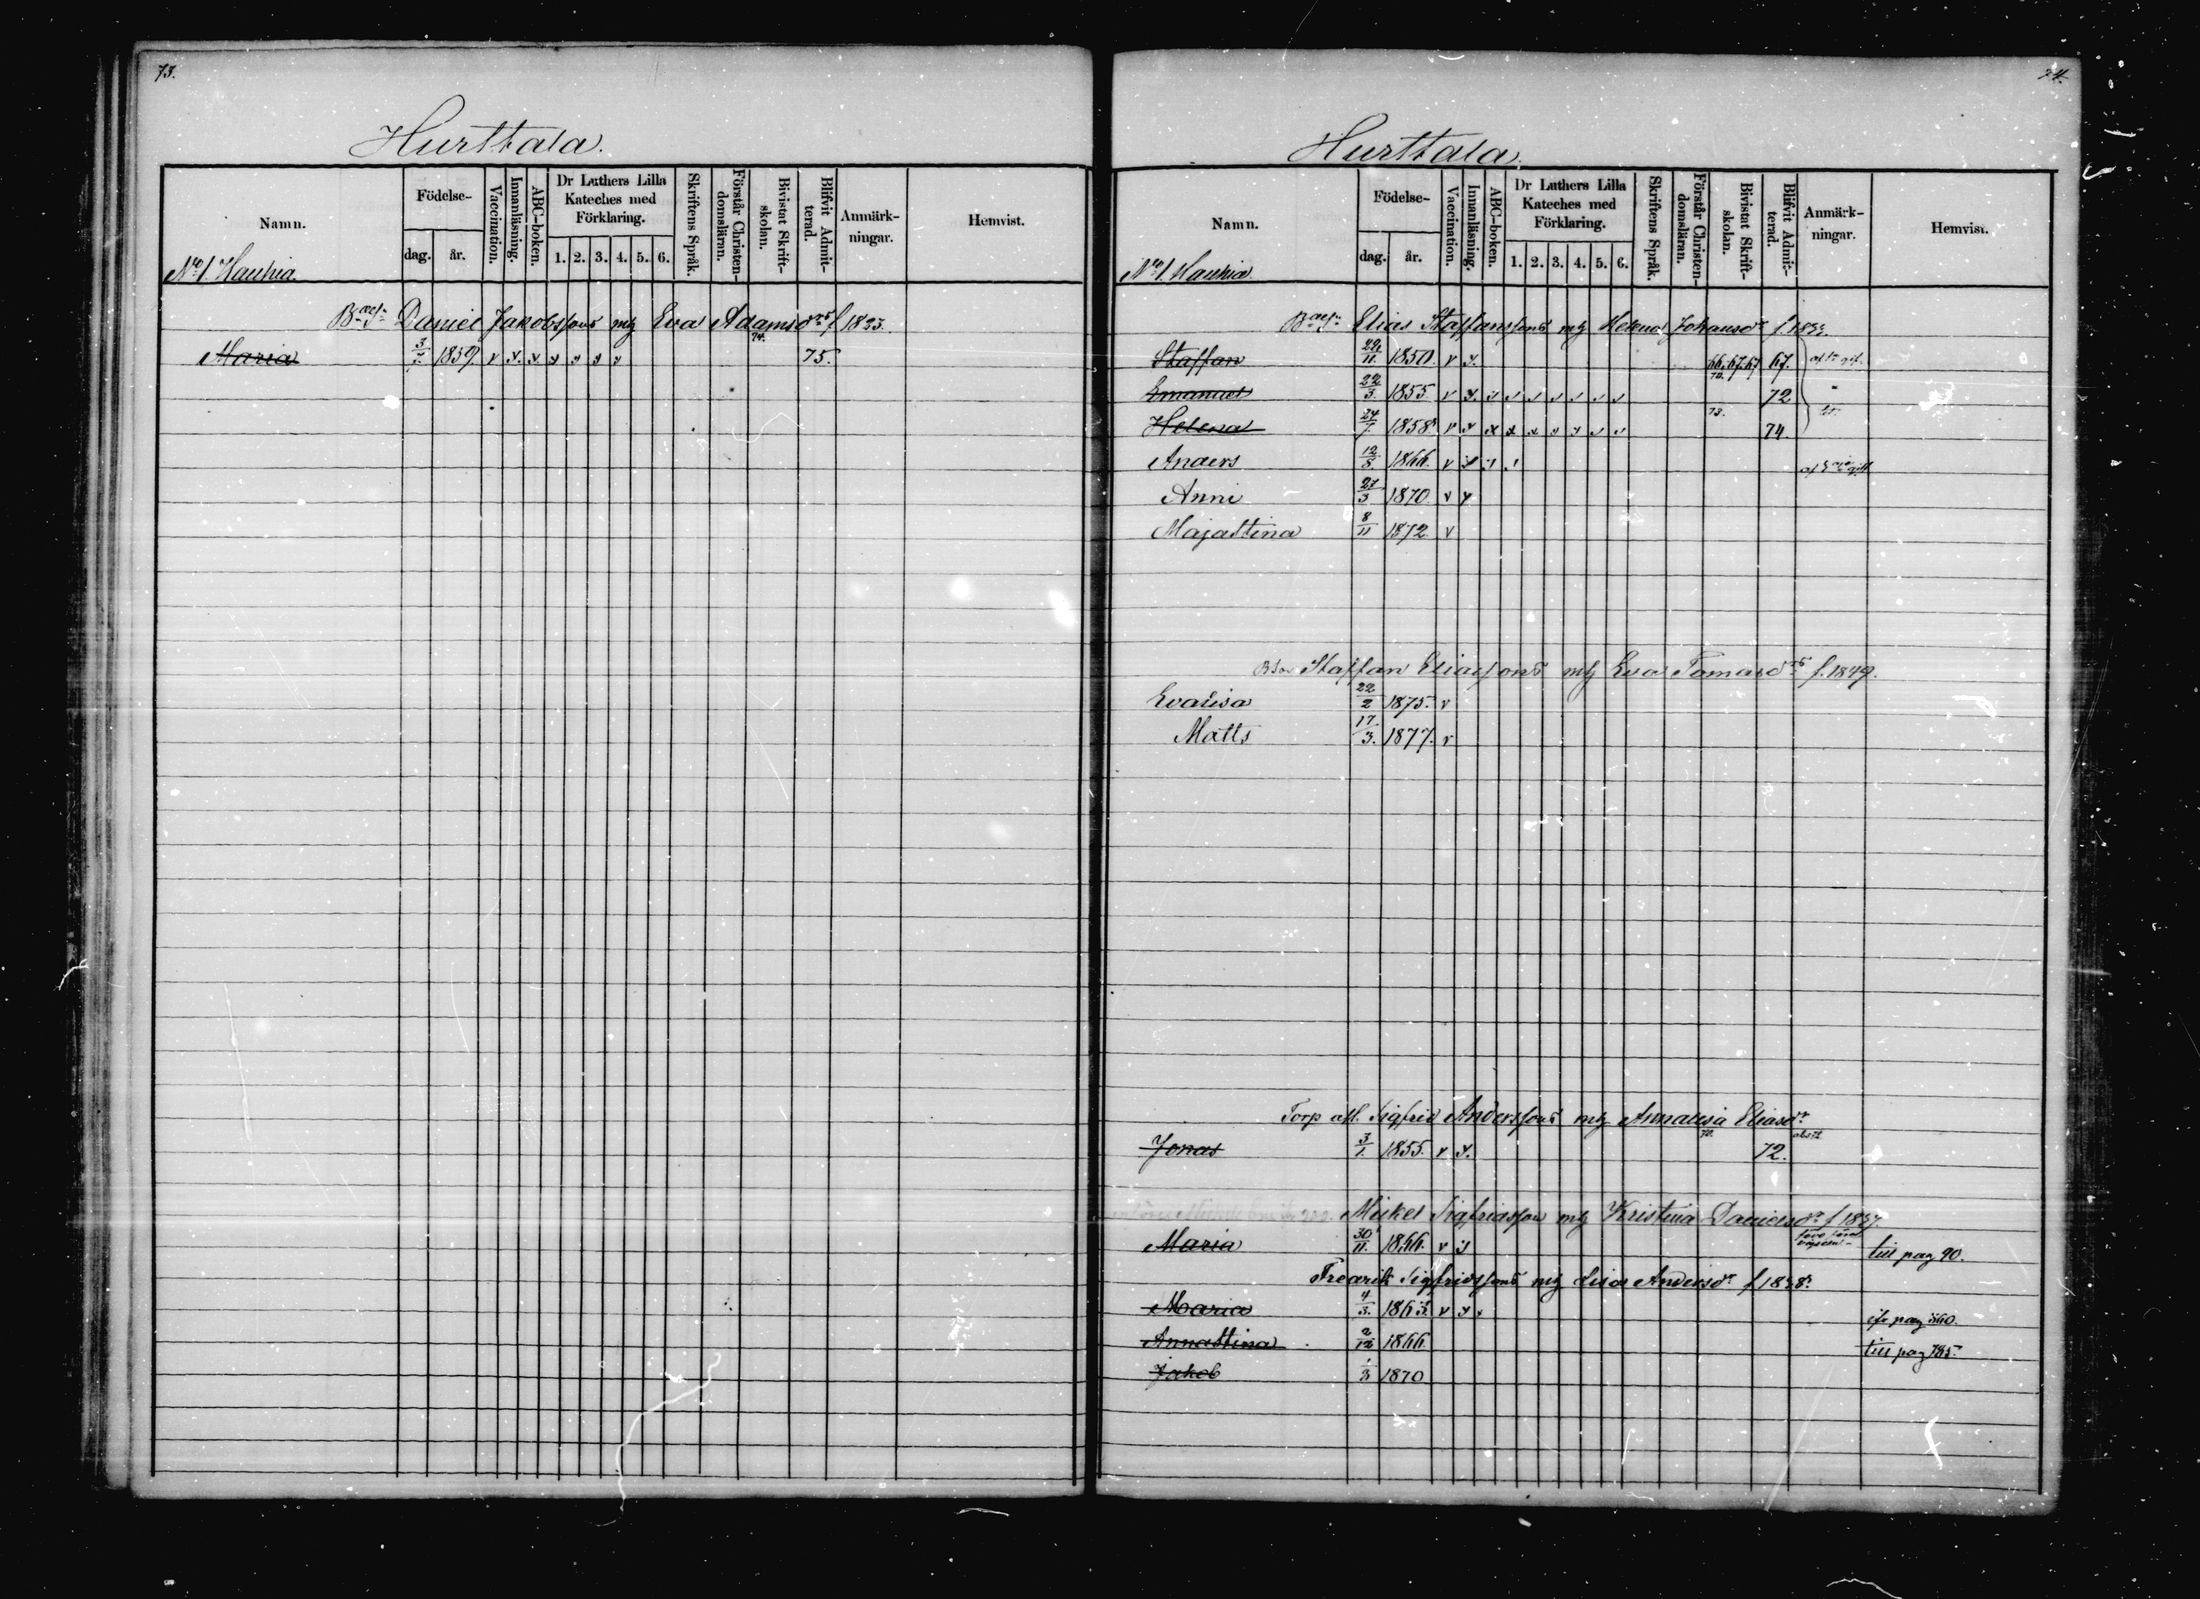 73.
Hurttala.
Namn.
Födelse-
dag.
år.
Vaccination.
Innanläsning.
ABC-boken.
Dr Luthers Lilla Kateches med Förklaring.
1. 2. 3. 4. 5. 6.
Skriftens Språk.
Förstår Christen-domsläran.
Bivistat Skrift-skolan.
Blifvit Admit-terad.
Anmärk-ningar.
Hemvist.
No 1. Hauhia.
Daniel Jakobssons m/h Eva Adamsdrs f 1823.
Maria 3/7. 1859. v v. v. v v v v 74. 75.
74.
Hurttala.
Namn.
Födelse-
dag.
år.
Vaccination.
Innanläsning.
ABC-boken.
Dr Luthers Lilla Kateches med Förklaring.
1. 2. 3. 4. 5. 6.
Skriftens Språk.
Förstår Christen-domsläran.
Bivistat Skrift-skolan.
Blifvit Admit-terad.
Anmärk-ningar.
Hemvist.
No 1. Hauhia.
Elias Staffanssons m/h Helena Johansdr
Staffan 1850. v v. 66. 67. 67 67.
Emanuel 22/3. 1855. v v. v v v v v v v 70. 72
Helena 24/7. 1858. v v v v v v v v v 73. 74.
Anders 12/8. 1866. v v v v
Anni 27/3 1870. v v
Majastina 8/11 1872. v
Staffan Eliassons m/h Eva Tomasdrs f. 1849.
Evalisa 22/2 1875. v
Matts 17/3. 1877. v
Torp afl. Sigfrid Anderssons m/h Annalisa Eliasdr
Jonas 3/1. 1855. v v. 70. 72.
Mickel Sigfridsson m/h Kristina Danielsdr
Maria 30/11. 1866. v v till pag 90.
Fredrik Sigfridssons m/h Lisa Andersdr f 1838.
Maria 4/3. 1863. v v v pag 360.
Annastina 2/12 1866. till pag 785.
Jakob 1/3 1870